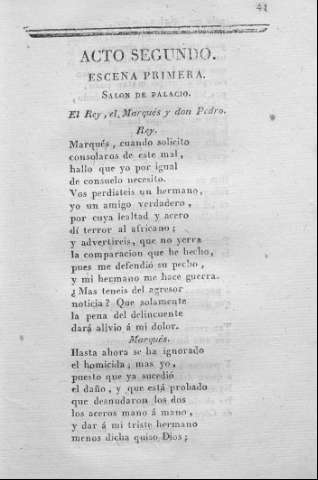 41
ACTO SEGUNDO.
ESCENA PRIMERA.
SALON DE PALACIO.
El Rey, el Marqués y don Pedro.
Rey.
Marqués, cuando solicito
consolaros de este mal,
hallo que yo por igual
de consuelo necesito.
Vos perdiateis un hermano,
yo un amigo verdadero,
por cuya lealtad y acero
dí terror al africano;
y advertireis, que no yerra
la comparacion que he hecho,
pues me defendió su pecho,
y mi hermano me hace guerra.
¿Mas teneis del agresor
noticia? Que solamente
la pena del delincuente
dará alivio á mi dolor.
Marqués.
Hasta ahora se ha ignorado
el homicida; mas yo,
puesto que ya sucedió
el daño, y que está probado
que desnudaron los dos
los aceros mano á mano,
y dar á mi triste hermano
menos dicha quiso Dios;